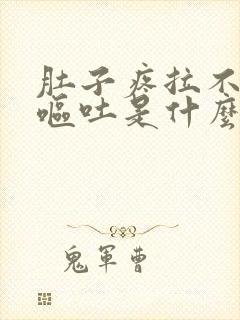 肚子疼拉不
嘔吐是什麼
鬼軍曹